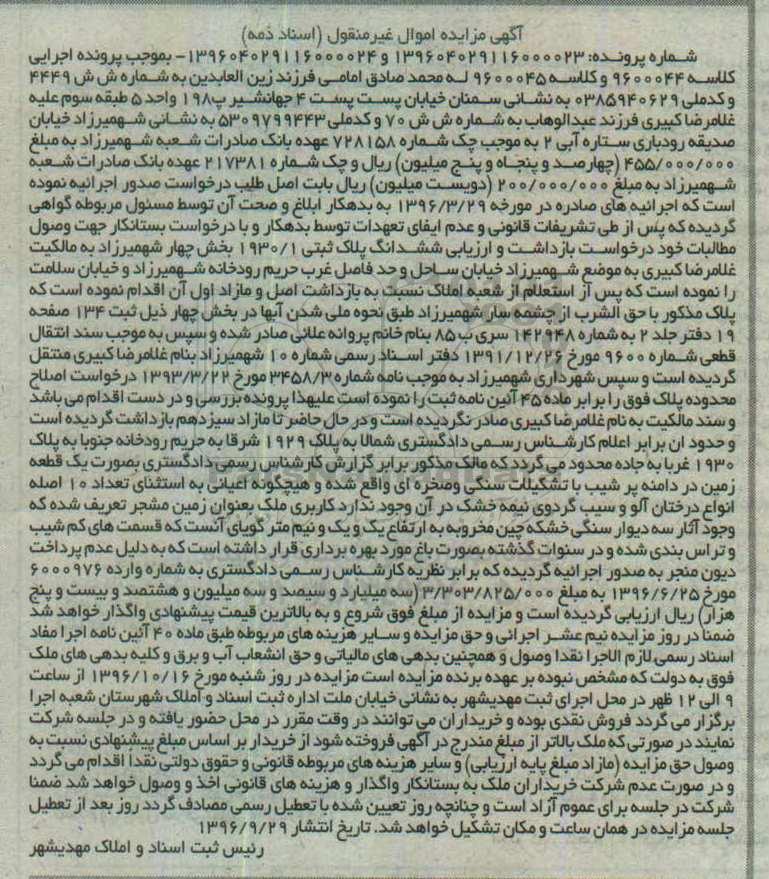 آگهی مزایده اموال غیرمنقول (اسناد ذمه)
شماره پرونده: ۱۳۹۶۰۴۰۲۹۱۱۶۰۰۰۰۲۳ و ۱۳۹۶۰۴۰۲۹۱۱۶۰۰۰۰۲۴- بموجب پرونده اجرایی
کلاسه ۹۶۰۰۰۴۴ و کلاسه ۹۶۰۰۰۴۵ له محمد صادق امامی فرزند زین العابدین به شماره ش ش ۴۴۴۹
و کدملی ۰۳۸۵۹۴۰۶۲۹ به نشانی سمنان خیابان پست پست ۴ جهانشیر پ۱۹۸ واحد ۵ طبقه سوم علیه
غلامرضا کبیری فرزند عبدالوهاب به شماره ش ش ۷۰ و کدملی ۵۳۰۹۷۹۹۴۴۳ به نشانی شهمیرزاد خیابان
صدیقه رودباری ستاره آبی ۲ به موجب چک شماره ۷۲۸۱۵۸ عهده بانک صادرات شعبه شهمیرزاد به مبلغ
۴۵۵/۰۰۰/۰۰۰ (چهارصد و پنجاه و پنج میلیون) ریال و چک شماره ۲۱۷۳۸۱ عهده بانک صادرات شعبه
شهمیرزاد به مبلغ ۲۰۰/۰۰۰/۰۰۰ (دویست میلیون) ریال بابت اصل طلب درخواست صدور اجرائیه نموده
است که اجرائیه های صادره در مورخه ۱۳۹۶/۳/۲۹ به بدهکار ابلاغ و صحت آن توسط مسئول مربوطه گواهی
گردیده که پس از طی تشریفات قانونی و عدم ایفای تعهدات توسط بدهکار و با درخواست بستانکار جهت وصول
مطالبات خود درخواست بازداشت و ارزیابی ششدانگ پلاک ثبتی ۱۹۳۰/۱ بخش چهار شهمیرزاد به مالکیت
غلامرضا کبیری به موضع شهمیرزاد خیابان ساحل و حد فاصل غرب حریم رودخانه شهمیرزاد و خیابان سلامت
را نموده است که پس از استعلام از شعبه املاک نسبت به بازداشت اصل و مازاد اول آن اقدام نموده است که
پلاک مذکور با حق الشرب از چشمه سار شهمیرزاد طبق نحوه ملی شدن آبها در بخش چهار ذیل ثبت ۱۳۴ صفحه
۱۹ دفتر جلد ۲ به شماره ۱۴۲۹۴۸ سری ب ۸۵ بنام خانم پروانه علائی صادر شده و سپس به موجب سند انتقال
قطعی شماره ۹۶۰۰ مورخ ۱۳۹۱/۱۲/۲۶ دفتر اسناد رسمی شماره ۱۰ شهمیرزاد بنام غلامرضا کبیری منتقل
گردیده است و سپس شهرداری شهمیرزاد به موجب نامه شماره ۳۴۵۸/۳ مورخ ۱۳۹۳/۳/۲۲ درخواست اصلاح
محدوده پلاک فوق را برابر ماده ۴۵ آئین نامه ثبت را نموده است علیهذا پرونده بررسی و در دست اقدام می باشد
و سند مالکیت به نام غلامرضا کبیری صادر نگردیده است و در حال حاضر تا مازاد سیزدهم بازداشت گردیده است
و حدود ان برابر اعلام کارشناس رسمی دادگستری شمالا به پلاک ۱۹۲۹ شرقا به حریم رودخانه جنوبا به پلاک
۱۹۳۰ غربا به جاده محدود می گردد که مالک مذکور برابر گزارش کارشناس رسمی دادگستری بصورت یک قطعه
زمین در دامنه پر شیب با تشکیلات سنگی وصخره ای واقع شده و هیچگونه اعیانی به استثنای تعداد ۱۰ اصله
انواع درختان آلو و سیب گردوی نیمه خشک در آن وجود ندارد کاربری ملک بعنوان زمین مشجر تعریف شده که
وجود آثار سه دیوار سنگی خشکه چین مخروبه به ارتفاع یک و یک و نیم متر گویای آنست که قسمت های کم شیب
و تراس بندی شده و در سنوات گذشته بصورت باغ مورد بهره برداری قرار داشته است که به دلیل عدم پرداخت
دیون منجر به صدور اجرائیه گردیده که برابر نظریه کارشناس رسمی دادگستری به شماره وارده ۶۰۰۰۹۷۶
مورخ ۱۳۹۶/۶/۲۵ به مبلغ ۳/۳۰۳/۸۲۵/۰۰۰ (سه میلیارد و سیصد و سه میلیون و هشتصد و بیست و پنج
هزار) ریال ارزیابی گردیده است و مزایده از مبلغ فوق شروع و به بالاترین قیمت پیشنهادی واگذار خواهد شد
ضمنا در روز مزایده نیم عشر اجرائی و حق مزایده و سایر هزینه های مربوطه طبق ماده ۴۰ آئین نامه اجرا مفاد
اسناد رسمی لازم الاجرا نقدا وصول و همچنین بدهی های مالیاتی و حق انشعاب آب و برق و کلیه بدهی های ملک
فوق به دولت که مشخص نبوده بر عهده برنده مزایده است مزایده در روز شنبه مورخ ۱۳۹۶/۱۰/۱۶ از ساعت
۹ الی ۱۲ ظهر در محل اجرای ثبت مهدیشهر به نشانی خیابان ملت اداره ثبت اسناد و املاک شهرستان شعبه اجرا
برگزار می گردد فروش نقدی بوده و خریداران می توانند در وقت مقرر در محل حضور یافته و در جلسه شرکت
نمایند در صورتی که ملک بالاتر از مبلغ مندرج در آگهی فروخته شود از خریدار بر اساس مبلغ پیشنهادی نسبت به
وصول حق مزایده (مازاد مبلغ پایه ارزیابی) و سایر هزینه های مربوطه قانونی و حقوق دولتی نقدا اقدام می گردد
و در صورت عدم شرکت خریداران ملک به بستانکار واگذار و هزینه های قانونی اخذ و وصول خواهد شد ضمنا
شرکت در جلسه برای عموم آزاد است و چنانچه روز تعیین شده با تعطیل رسمی مصادف گردد روز بعد از تعطیل
جلسه مزایده در همان ساعت و مکان تشکیل خواهد شد. تاریخ انتشار ۱۳۹۶/۹/۲۹
رئیس ثبت اسناد و املاک مهدیشهر